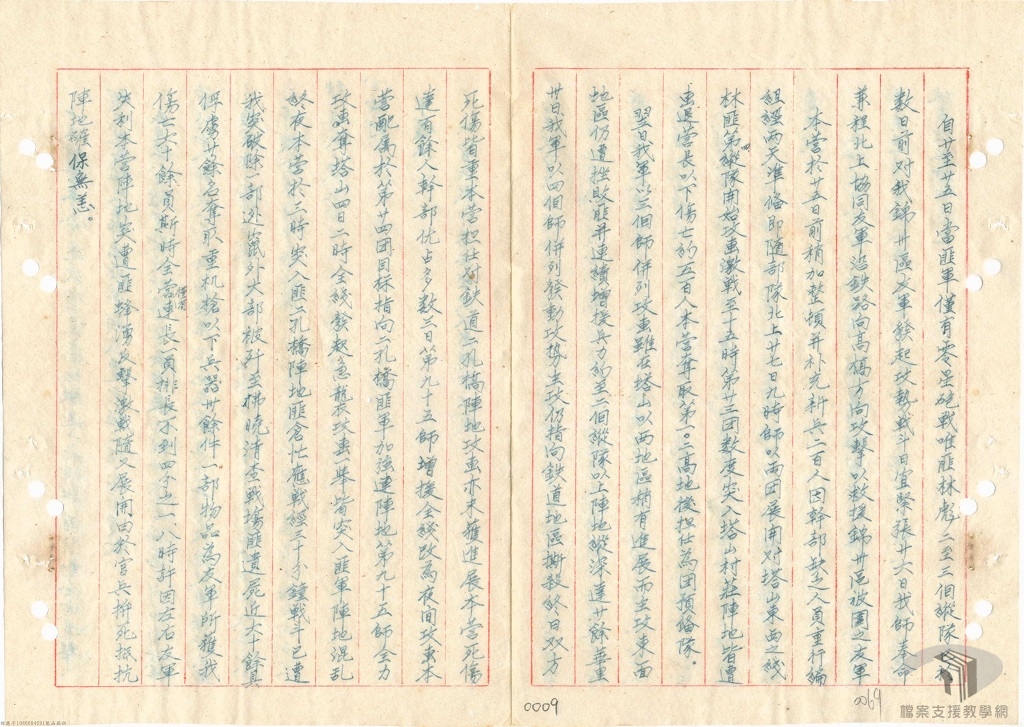 自廿至廿五日當匪軍僅有零星砲戰唯匪林彪二至三個縱隊於
數日前对我錦州區友軍發起攻勢戰斗日宜緊張廿六日我師奉命
兼程北上協同友軍沿鉄路向高橋方向攻擊以救援錦州區被圍之友軍
本營於廿五日前稍加整頓并补充新兵二百人因幹部缺乏人員重行編
組經兩天準俻即隨部隊北上廿七日九時師以兩团展開对塔山東西之线
林匪第四縱隊開始攻擊激戰至十五時第廿三团數度突入塔山村莊陣地皆遭
擊退營長以下傷亡約五百人本營奪取第一〇二高地後担任為团預俻隊。
翌日我軍以三個師併列攻擊雖在塔山以西地區稍有進展而主攻東面
地區仍遭挫敗匪并連續增援兵力約至二個縱隊以上陣地縱深達廿餘華里
卅日我軍以四個師併列發動攻勢主攻仍指向鉄道地區撕殺終日双方
死傷皆重本營担任对鉄道二孔橋陣地攻擊亦未獲進展本營死傷
達百餘人幹部优占多數三日第九十五師增援全线改為夜間攻擊本
營配属於第廿四团目标指向二孔橋匪軍加強連陣地第九十五師全力
攻擊奪塔山四日二時全线發起急襲攻擊一舉皆突入匪軍陣地混乱
終夜本營於三時突入匪二孔橋陣地匪倉忙應戰經三十分鐘戰斗已遭
我完破除一部逃竄外大部被歼至拂曉清查戰場匪遺屍近六十餘具
俘虜廿餘名奪取重机槍以下兵器卅餘件一部物品為友軍所獲我
傷亡六十餘員斯時全營僅有連長一員排長不到四分之一八時許因左右友軍
失利本營陣地突遭匪蜂湧反擊激戰隨之展開由於官兵拚死抵抗
陣地確保無恙。
0009
0069
檔案支援教學網